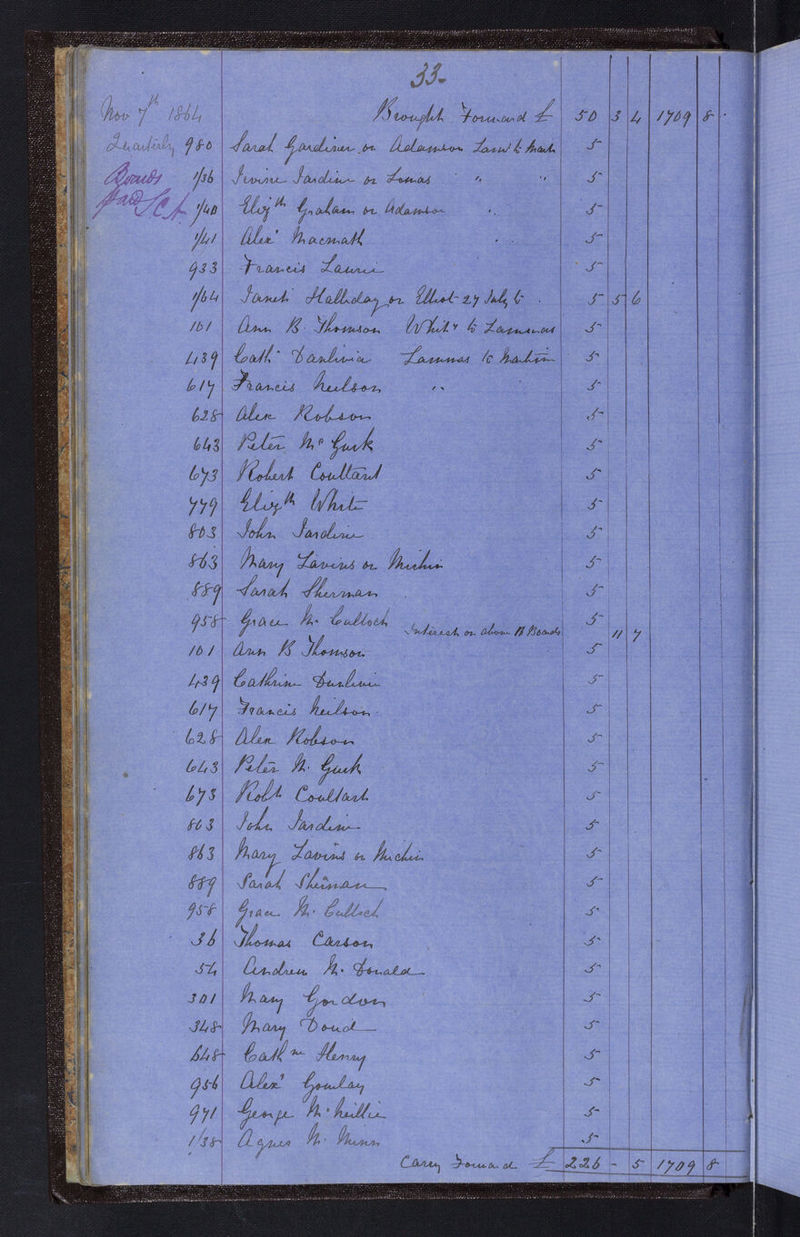 33-
Nov 7th 1864 Brought Forward £ 50 3 4 1709 8 .
Quarterly 980 Sarah Gardiner or Adamson Lams to Mart 5
Boards 1/36 Irvine Jardine or Lomas " " 5
paid 1/40 Elizth Graham or Adamson " 5
1/41 Alexr Macmath 5
933 Francis Laurie 5
1/64 Janet Halliday or Elliot 27 July to . 5 5 6
101 Ann B Thomson Whity to Lammas 5
439 Cath Danlivia Lammas to Martin 5
617 Francis Neilson " 5
628 Alex Robson 5
643 Peter Mc Gurk 5
673 Robert Coultart 5
779 Elizth White 5
803 John Jardine 5
863 Mary Lavins or Michin 5
889 Sarah Sherman 5
958 Grace Mc Culloch 5
Interest on above 11 Boards 11 7
101 Ann B Thomson 5
439 Cathrine Dunlivie 5
617 Francis Neilson 5
628 Alex Robson 5
643 Peter Mc Gurk 5
673 Robt Coultart 5
803 John Jardine 5
863 Mary Lavins or Michin 5
889 Sarah Sherman 5
958 Grace Mc Culloch 5
36 Thomas Carson 5
54 Andrew Mc Donald 5
301 Mary Gordon 5
348 Mary Doud 5
648 Cathne Henry 5
956 Alexr Gourlay 5
971 George McNeillie 5
1/38 Agnes Mc Minn 5
Carry Forward £ 226 - 5 1709 8